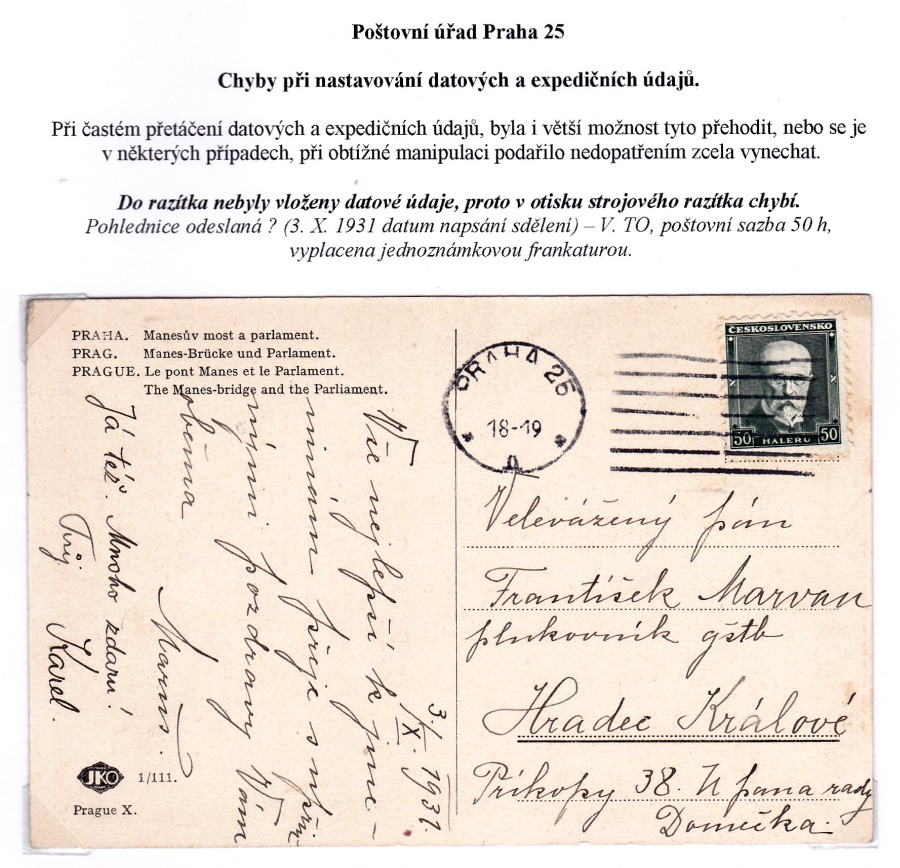 Poštovní úřad Praha 25
Chyby při nastavování datových a expedičních údajů.
Při častém přetáčení datových a expedičních údajů, byla i větší možnost tyto přehodit, nebo se je
v některých případech, při obtížné manipulaci podařilo nedopatřením zcela vynechat.
Do razítka nebyly vloženy datové údaje, proto v otisku strojového razítka chybí.
Pohlednice odeslaná ? (3. X. 1931 datum napsání sdělení) – V. TO, poštovní sazba 50 h,
vyplacena jednoznámkovou frankaturou.
PRAHA. Manesův most a parlament.
PRAG. Manes-Brücke und Parlament.
PRAGUE. Le pont Manes et le Parlament.
The Manes-bridge and the Parliament.
3./X. 1931.
Vše nejlepší k jme-
ninám přeje s upřím-
nými pozdravy Vám
oběma
Já též. Mnoho zdaru!
Tvůj Karel.
JKO 1/111.
Prague X.
PRAHA 25
18-19
ČESKOSLOVENSKO
50 HALERU 50
Velevážený pán
František Marvan
plukovník gštb
Hradec Králové
Příkopy 38. U pana rady
Domečka.